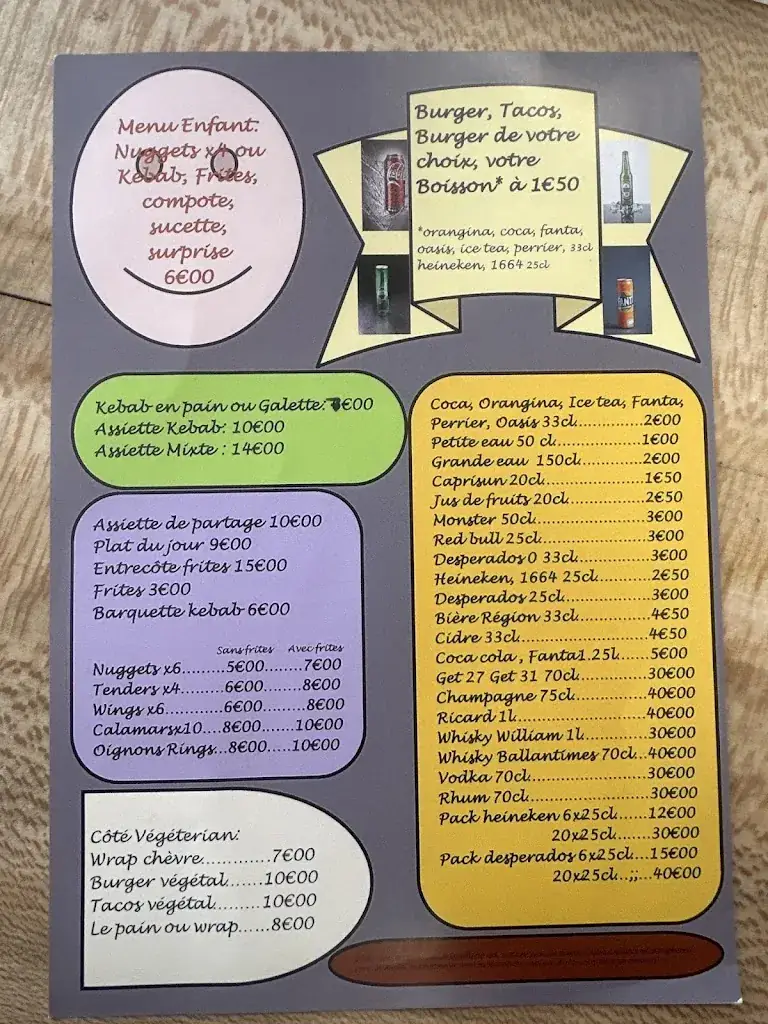 Menu Enfant:
Nuggets x4 ou
Kebab, Frites,
compote,
sucette,
surprise
6€00
Burger, Tacos,
Burger de votre
choix, votre
Boisson* à 1€50
*orangina, coca, fanta,
oasis, ice tea, perrier, 33cl
heineken, 1664 25cl
Kebab en pain ou Galette: €00
Assiette Kebab: 10€00
Assiette Mixte : 14€00
Assiette de partage 10€00
Plat du jour 9€00
Entrecôte frites 15€00
Frites 3€00
Barquette kebab 6€00
Sans frites Avec frites
Nuggets x6.........5€00........7€00
Tenders x4..........6€00........8€00
Wings x6............6€00.........8€00
Calamarsx10....8€00.......10€00
Oignons Rings...8€00.....10€00
Côté Végéterian:
Wrap chèvre............7€00
Burger végétal......10€00
Tacos végétal.........10€00
Le pain ou wrap......8€00
Coca, Orangina, Ice tea, Fanta,
Perrier, Oasis 33cl..............2€00
Petite eau 50 cl...................1€00
Grande eau 150cl...............2€00
Caprisun 20cl......................1€50
Jus de fruits 20cl.................2€50
Monster 50cl........................3€00
Red bull 25cl........................3€00
Desperados 0 33cl................3€00
Heineken, 1664 25cl............2€50
Desperados 25cl...................3€00
Bière Région 33cl.................4€50
Cidre 33cl.............................4€50
Coca cola , Fanta1.25l.......5€00
Get 27 Get 31 70cl...............30€00
Champagne 75cl..................40€00
Ricard 1l..............................40€00
Whisky William 1l..............30€00
Whisky Ballantimes 70cl...40€00
Vodka 70cl...........................30€00
Rhum 70cl............................30€00
Pack heineken 6x25cl.........12€00
20x25cl.......30€00
Pack desperados 6x25cl....15€00
20x25cl..;;...40€00